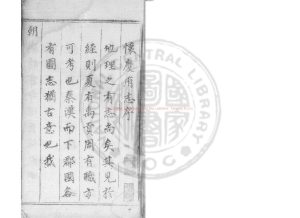 懷慶府志序
地理之有志尚矣其見於
經則夏有禹貢周有職方
可考也秦漢而下郡國各
有圖志猶古意也我
朝